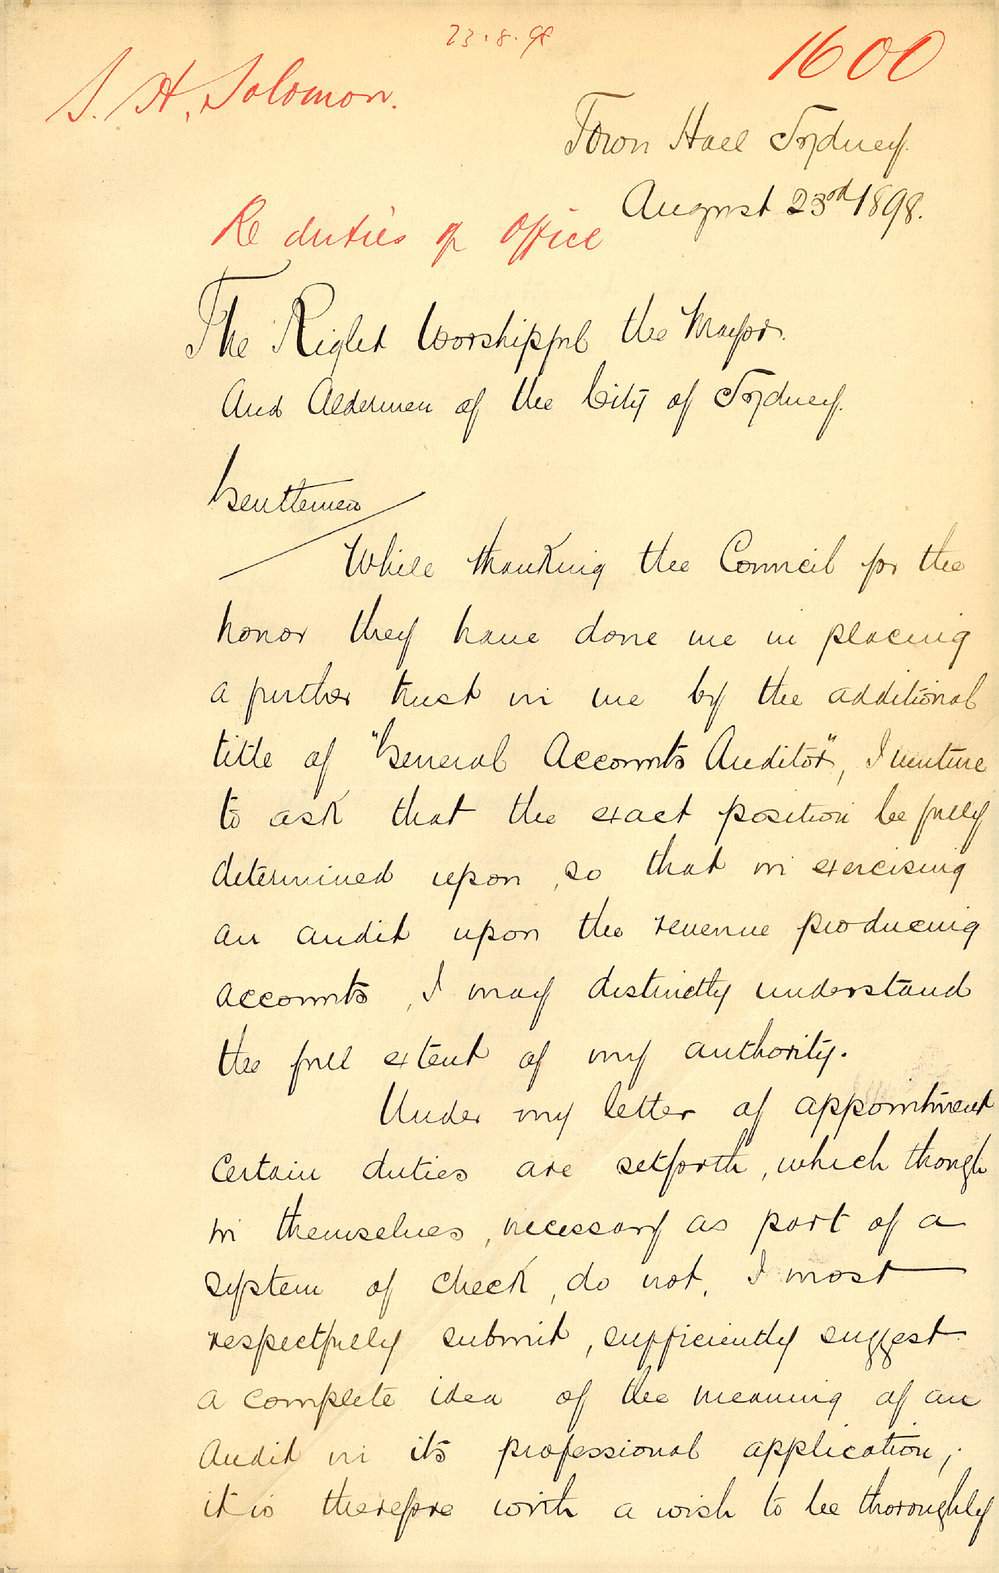 23.8.98
1600
S. H. Solomon.
Town Hall Sydney.
August 23rd 1898.
Re duties of Office
The Right Worshipful the Mayor.
And Aldermen of the City of Sydney.
Gentlemen
While thanking the Council for the
honor they have done me in placing
a further trust in me by the additional
title of "General Accounts Auditor", I venture
to ask that the exact position be fully
determined upon, so that in exercising
an audit upon the revenue producing
accounts, I may distinctly understand
the full extent of my authority.
Under my letter of appointment
certain duties are setforth, which though
in themselves, necessary as part of a
system of check, do not, I most
respectfully submit, sufficiently suggest
a complete idea of the meaning of an
Audit in its professional application,;
it is therefore with a wish to be thoroughly